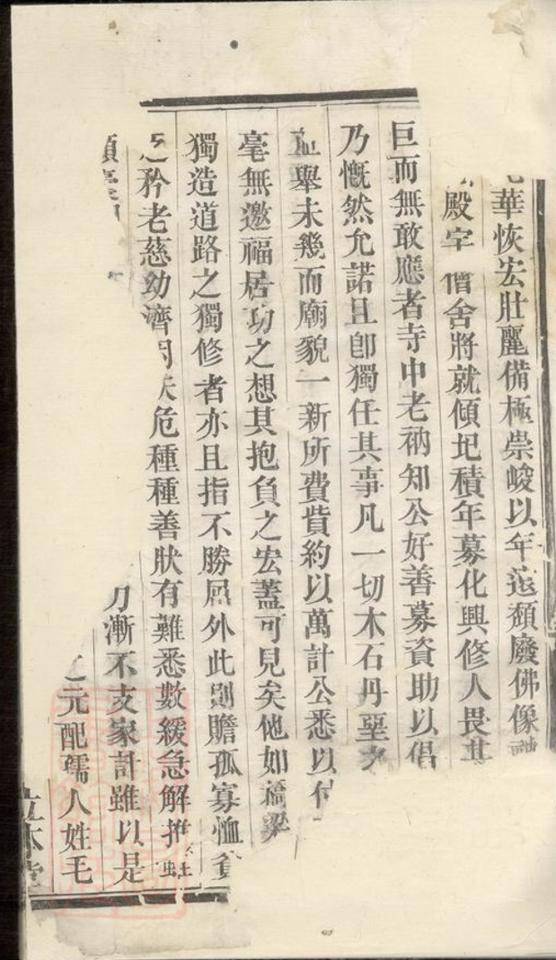 華恢宏壯麗備極崇峻以年遠頽廢佛像
殿宇僧舍將就傾圮積年募化興修人畏其
巨而無敢應者寺中老衲知公好善募資助以倡
乃慨然允諾且卽獨任其事凡一切木石丹堊
舉未幾而廟貌一新所費貲約以萬計公悉以
毫無邀福居功之想其抱負之宏蓋可見矣他如橋梁
獨造道路之獨修者亦且指不勝屈外此則贍孤寡恤
矜老慈幼濟困扶危種種善狀有難悉數緩急解推
漸不支家計雖以是
元配孺人姓毛
立本堂